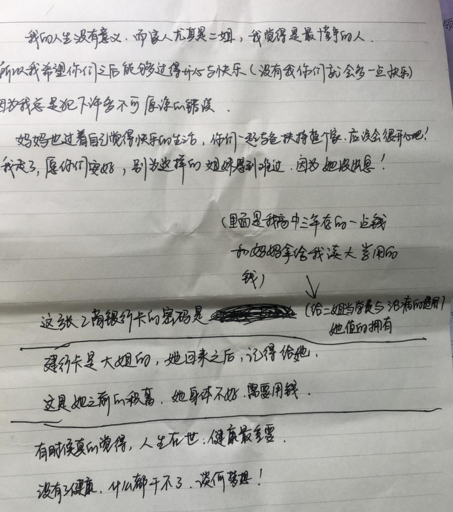 我的人生没有意义.而家人尤其是二姐,我觉得是最懂事的人.
所以我希望你们之后能够过得开心与快乐(没有我你们就会多一点快乐)
因为我总是犯下许多不可原谅的错误.
妈妈也过着自己觉得快乐的生活,你们一起与爸扶持整个家.应该会很开心吧!
我走了,愿你们安好,别为这样的姐妹感到难过.因为她没出息!
(里面是我高中三年存的一点钱
和妈妈拿给我读大学用的
钱)
这张工商银行卡的密码是
(给二姐当学费与治病的费用)
她值的拥有
建行卡是大姐的,她回来之后,记得给她.
这是她之前的积蓄.她身体不好.需要用钱.
有时候真的觉得,人生在世.健康最重要.
没有了健康.什么都干不了.谈何梦想!